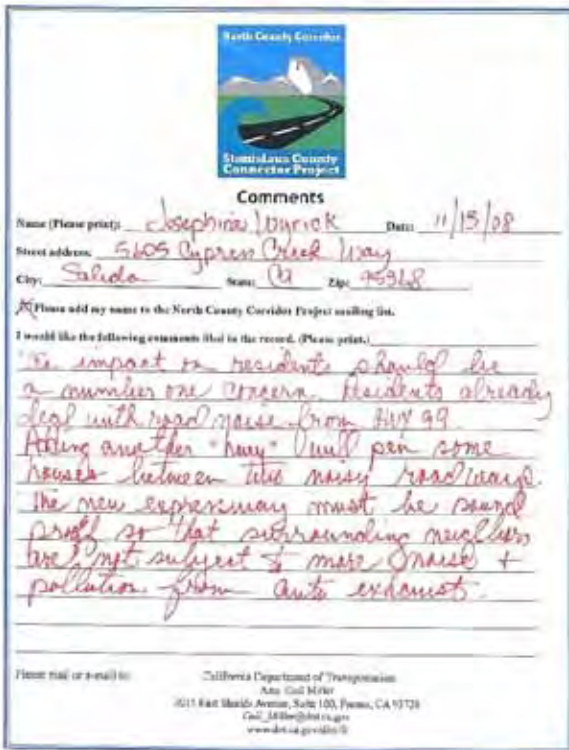 North County Corridor
Stanislaus County
Connector Project
Comments
Name (Please print): Josephina Wyrick Date: 11/15/08
Street address: 5605 Cypress Creek Way
City: Salida State: Ca Zip: 95368
Please add my name to the North County Corridor Project mailing list.
I would like the following comments filed in the record. (Please print.)
The impact on residents should be
a number one concern. Residents already
deal with road noise from HWY 99
Adding another "hwy" will pen some
houses between two noisy roadways.
The new expressway must be sound
proof so that surrounding neighbors
are not subject to more noise +
pollution from auto exhaust.
Please mail or e-mail to: California Department of Transportation
Attn: Gail Miller
2015 East Shields Avenue, Suite 100, Fresno, CA 93726
Gail_Miller@dot.ca.gov